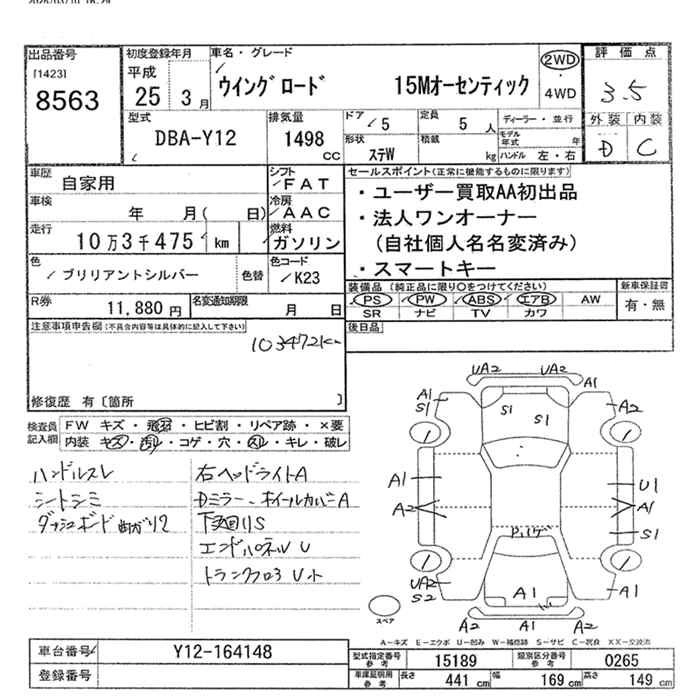 出品番号
[1423]
8563
初度登録年月
平成
25 3月
車名・グレード
ウイングロード 15Mオーセンティック
2WD
・
4WD
評価点
3.5
外装 内装
D C
型式
DBA-Y12
排気量
1498
CC
ドア 5
形状
ステW
定員
5 人
積載
kg
ディーラー・並行
モデル年式 年
ハンドル 左・右
車歴
自家用
シフト
FAT
車検
年 月( 日)
冷房
AAC
走行
10万3千475 km
燃料
ガソリン
色
ブリリアントシルバー
色替
色コード
K23
R券
11,880 円
名変通知期限
月 日
セールスポイント(正常に機能するものに限ります)
・ユーザー買取AA初出品
・法人ワンオーナー
(自社個人名名変済み)
・スマートキー
装備品(純正品に限り○をつけてください)
PS PW ABS エアB AW
SR ナビ TV カワ
新車保証書
有・無
後日品
注意事項申告欄(不具合内容等は具体的に記入して下さい)
103472km
修復歴 有〔箇所 〕
検査員記入欄
FW キズ・飛石・ヒビ割・リペア跡・×要
内装 キズ・汚れ・コゲ・穴・スレ・キレ・破レ
ハンドルスレ
シートシミ
ダッシュボード
右ヘッドライトA
Dミラー、ホイールカバーA
下回りS
エンドパネルU
トランクフロアUホ
UA2 UA2
A1
A1
S1
S1
S1
A2
A1
A2
U1
A1
S1
UA2
S2
A1
A1
A2 A2
スペア
A-キズ E-エクボ U-凹み W-補修跡 S-サビ C-腐食 XX-交換済
車台番号
Y12-164148
登録番号
型式指定番号
参考
15189
類別区分番号
参考
0265
車庫証明用
参考
長さ 441 cm 幅 169 cm 高さ 149 cm